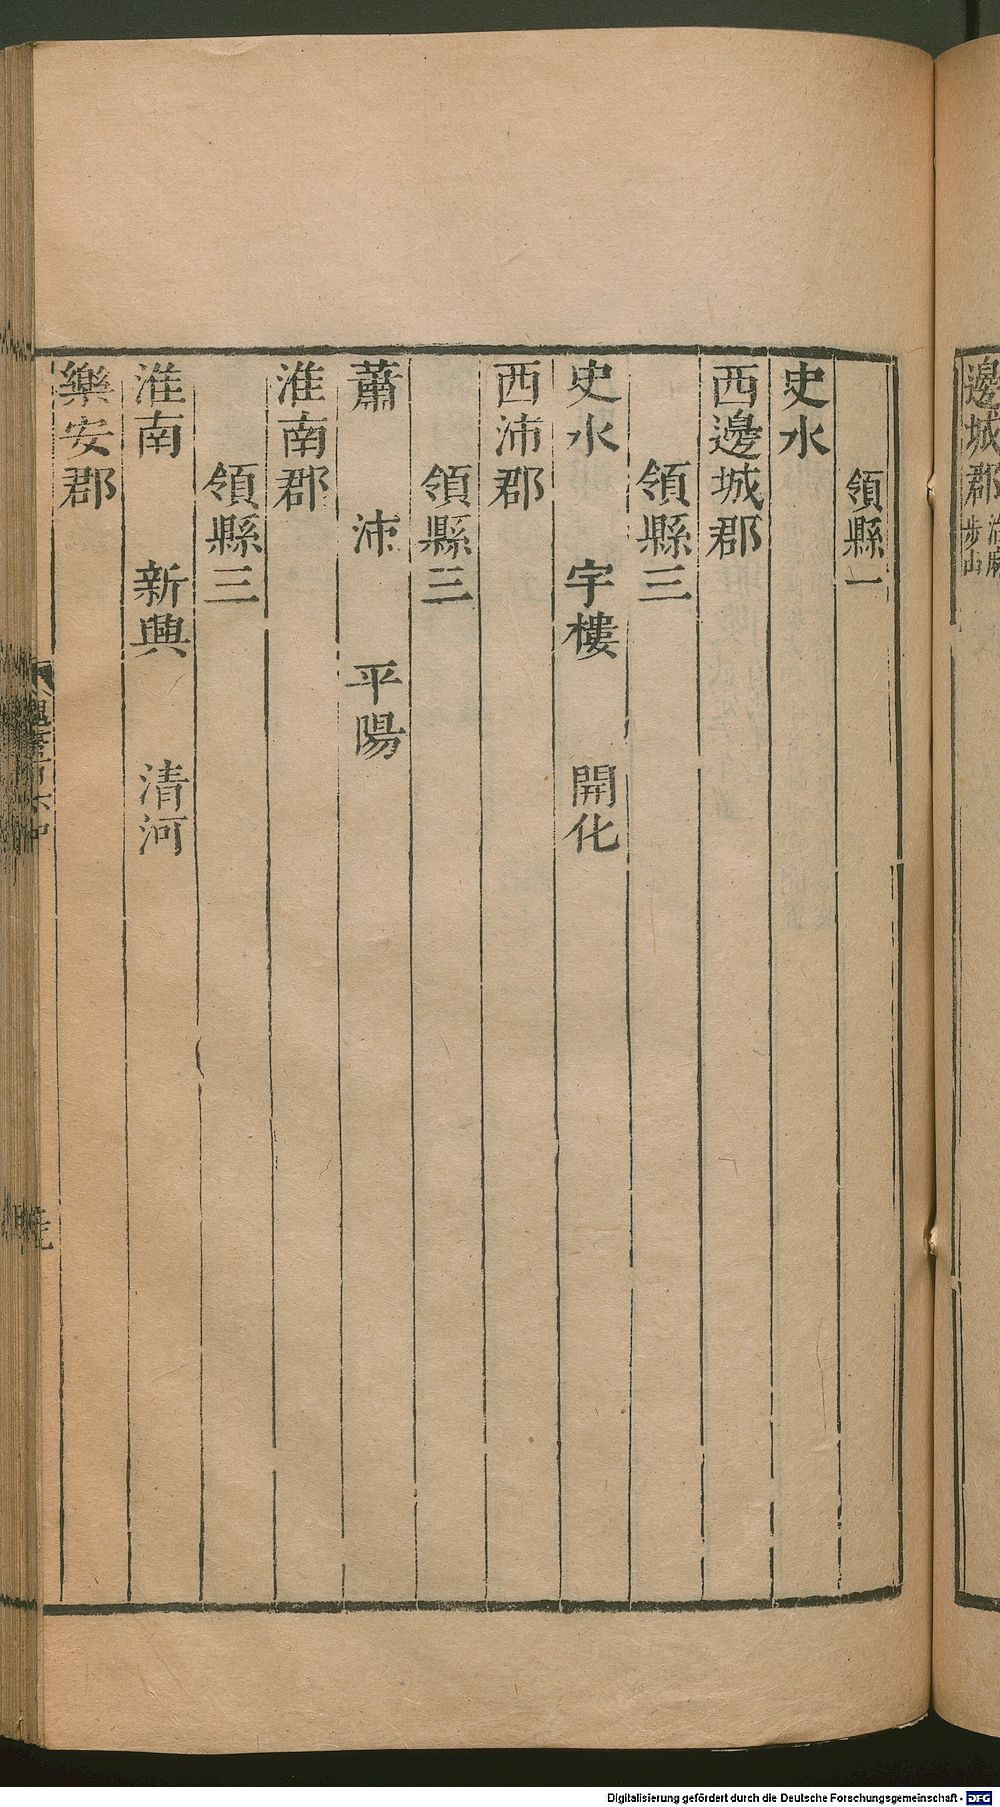 邊城郡治麻步山
領縣一
史水
西邊城郡
領縣三
史水　宇樓　開化
西沛郡
領縣三
蕭　沛　平陽
淮南郡
領縣三
淮南　新興　清河
樂安郡
魏書百六中
Digitalisierung gefördert durch die Deutsche Forschungsgemeinschaft - DFG